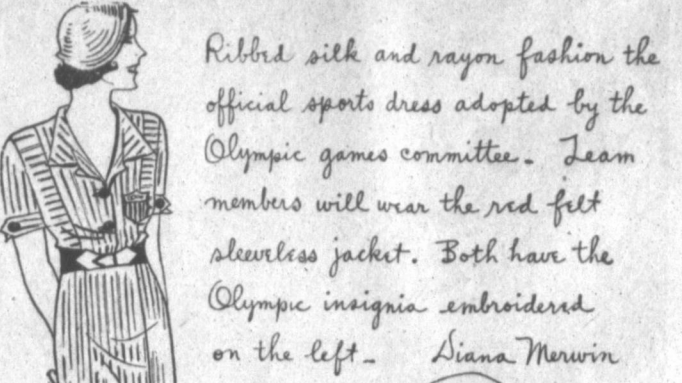 Ribbed silk and rayon fashion the
official sports dress adopted by the
Olympic games committee. Team
members will wear the red felt
sleeveless jacket. Both have the
Olympic insignia embroidered
on the left - Diana Merwin